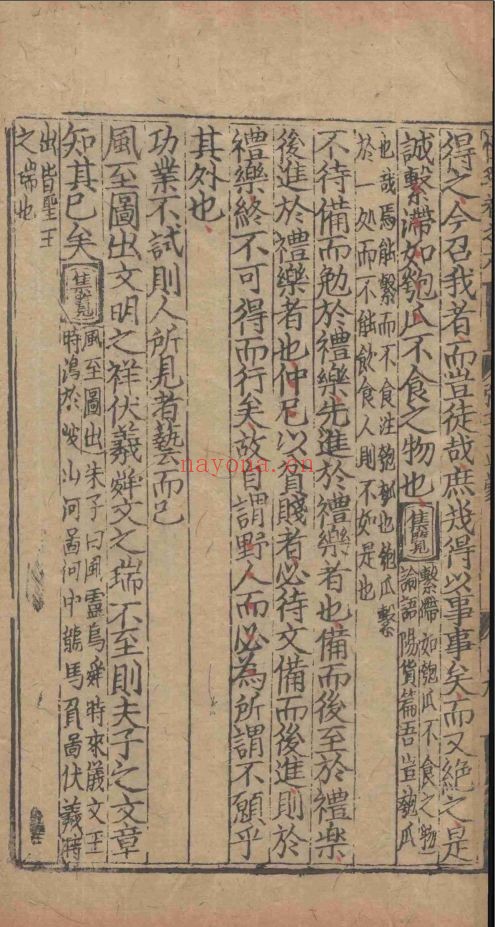 得之今召我者而豈徒哉庶幾得以事事矣而又絕之是
誠繫滯如匏瓜不食之物也集覽
繫滯如匏瓜不食之物
論語陽貨篇吾豈匏瓜
也哉焉能繫而不食注匏瓠也匏瓜繫
於一処而不能飲食人則不如是也
不待備而勉於禮樂先進於禮樂者也備而後至於禮樂
後進於禮樂者也仲尼以貧賤者必待文備而後進則於
禮樂終不可得而行矣故自謂野人而必為所謂不願乎
其外也
功業不試則人所見者藝而已
鳳至圖出文明之祥伏羲舜文之瑞不至則夫子之文章
知其已矣集覽
鳳至圖出朱子曰鳳靈鳥舜時來儀文王
時鳴於岐山河啚河中龍馬負啚伏羲時
出皆聖王
之瑞也
nayona.cn